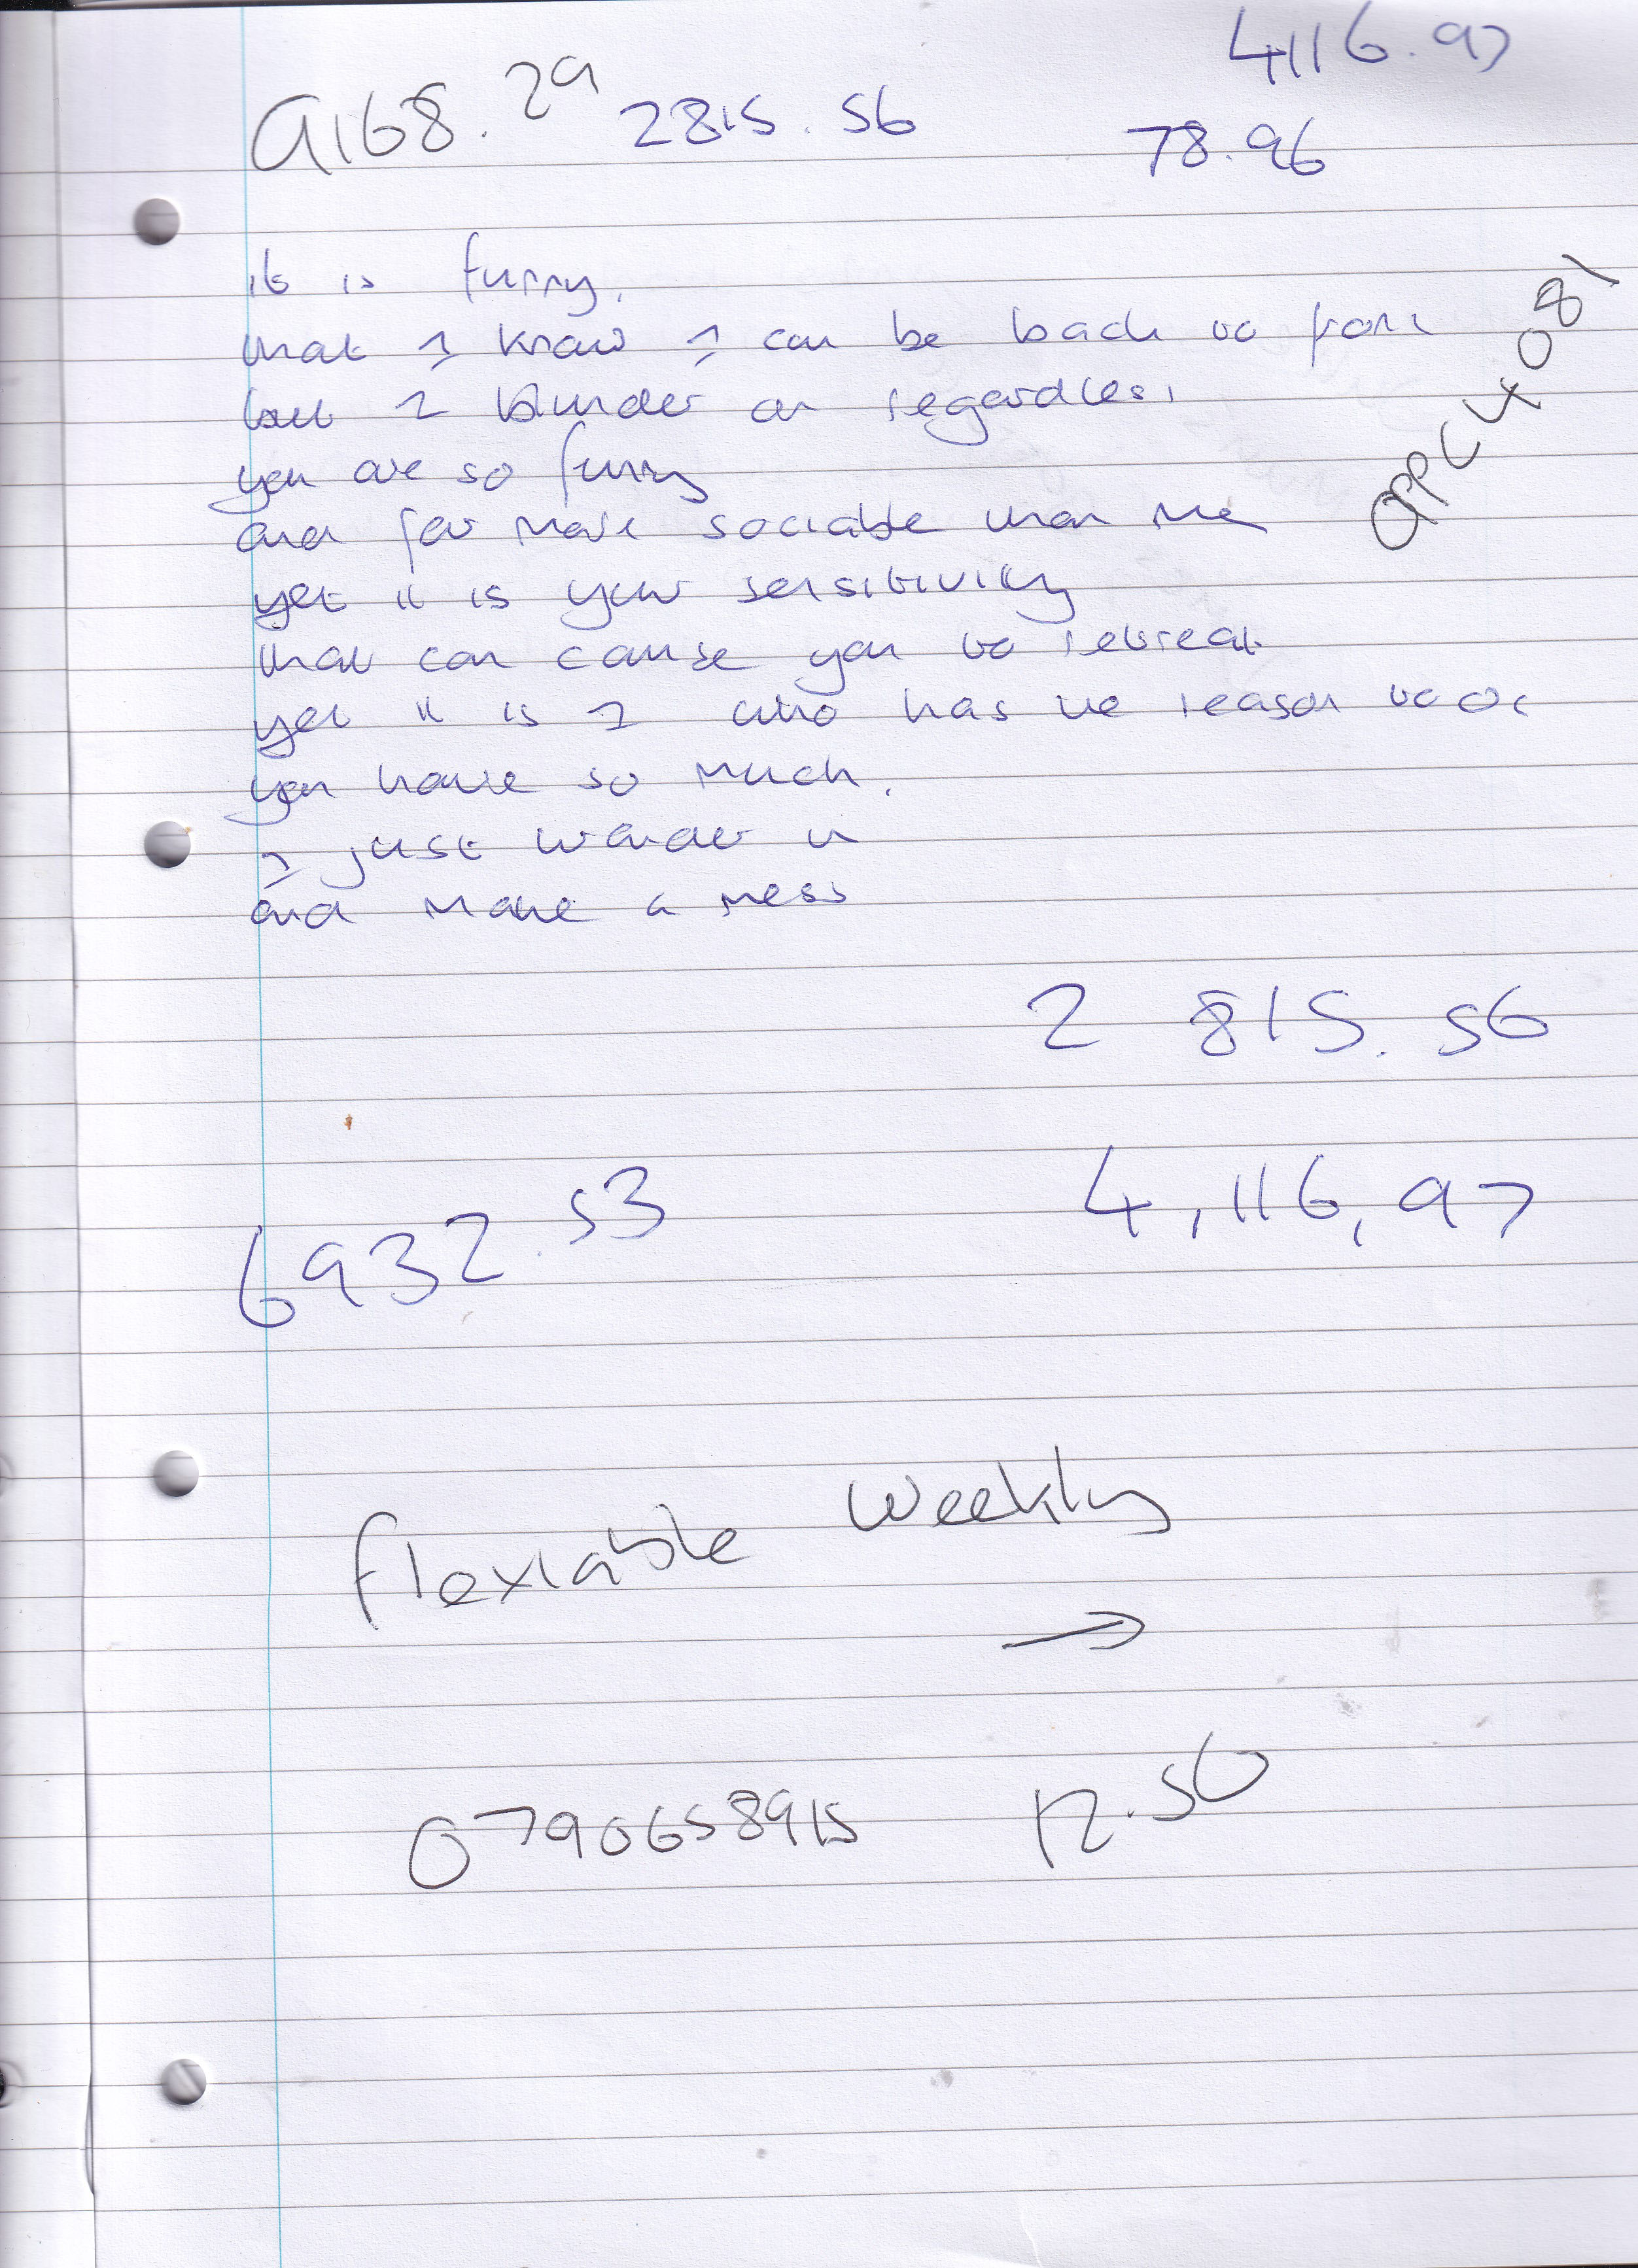 4116.97
9168.29 2815.56
78.96
it is funny.
that I know I can be back to front
but I blunder on regardless,
OPPC4081
you are so funny
and far more sociable than me
yet it is your sensitivity
that can cause you to retreat
yet it is I who has the reason to be
you have so much.
I just wander in
and make a mess
2 815.56
4,116,97
6932.53
flexiable weekly
→
0790658915 12.50